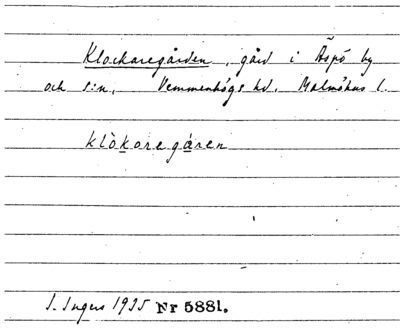 Klockaregården, gård i Äspö by
och s:n, Vemmenhögs hd. Malmöhus l.
klòkaregáren
I. Ingers 1935 Nr 5881.